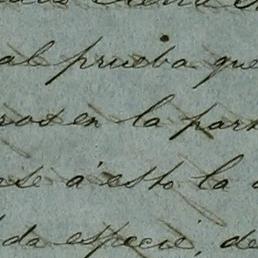 al prueba que
en la par
se á esto la
da especie, de